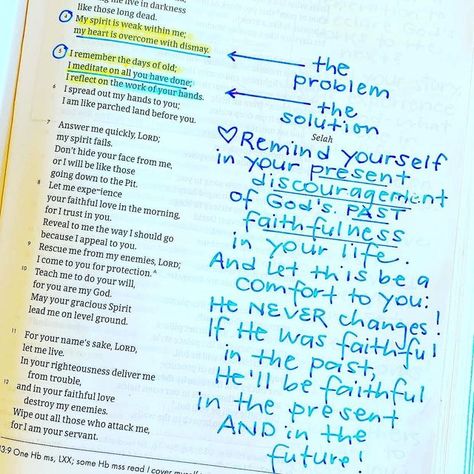 me live in darkness
like those long dead.
4 My spirit is weak within me;
my heart is overcome with dismay.
5 I remember the days of old;
I meditate on all you have done;
I reflect on the work of your hands.
6 I spread out my hands to you;
I am like parched land before you.
Selah
7 Answer me quickly, LORD;
my spirit fails.
Don't hide your face from me,
or I will be like those
going down to the Pit.
8 Let me experience
your faithful love in the morning,
for I trust in you.
Reveal to me the way I should go
because I appeal to you.
9 Rescue me from my enemies, LORD;
I come to you for protection.ᴬ
10 Teach me to do your will,
for you are my God.
May your gracious Spirit
lead me on level ground.
11 For your name's sake, LORD,
let me live.
In your righteousness deliver me
from trouble,
12 and in your faithful love
destroy my enemies.
Wipe out all those who attack me,
for I am your servant.
3:9 One Hb ms, LXX; some Hb mss read I cover
the
problem
the
solution
♡ Remind yourself
in your present
discouragement
of God's PAST
faithfulness
in your life.
And let this be a
comfort to you:
He NEVER changes!
If He was faithful
in the past,
He'll be faithful
in the present
AND in the
future!